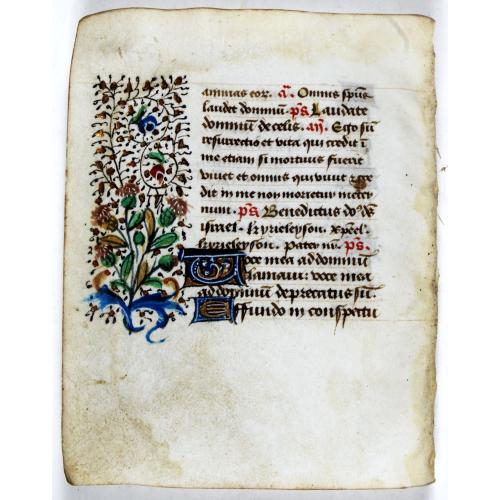 animas eor. a. Omnis spūs
laudet dominū. ps Laudate
dominū de celis. an. Ego sū
resurrectio et vita qui credit ī
me etiam si mortuus fuerit
vivet et omnis qui vivit et cre
dit in me non morietur in eter
num. ps Benedictus dōs ds
israel. kyrieleyson. xpēel.
kyrieleyson. Pater nr. ps.
Voce mea ad dominū
clamavi: voce mea
ad dominū deprecatus sū.
Effundo in conspectu